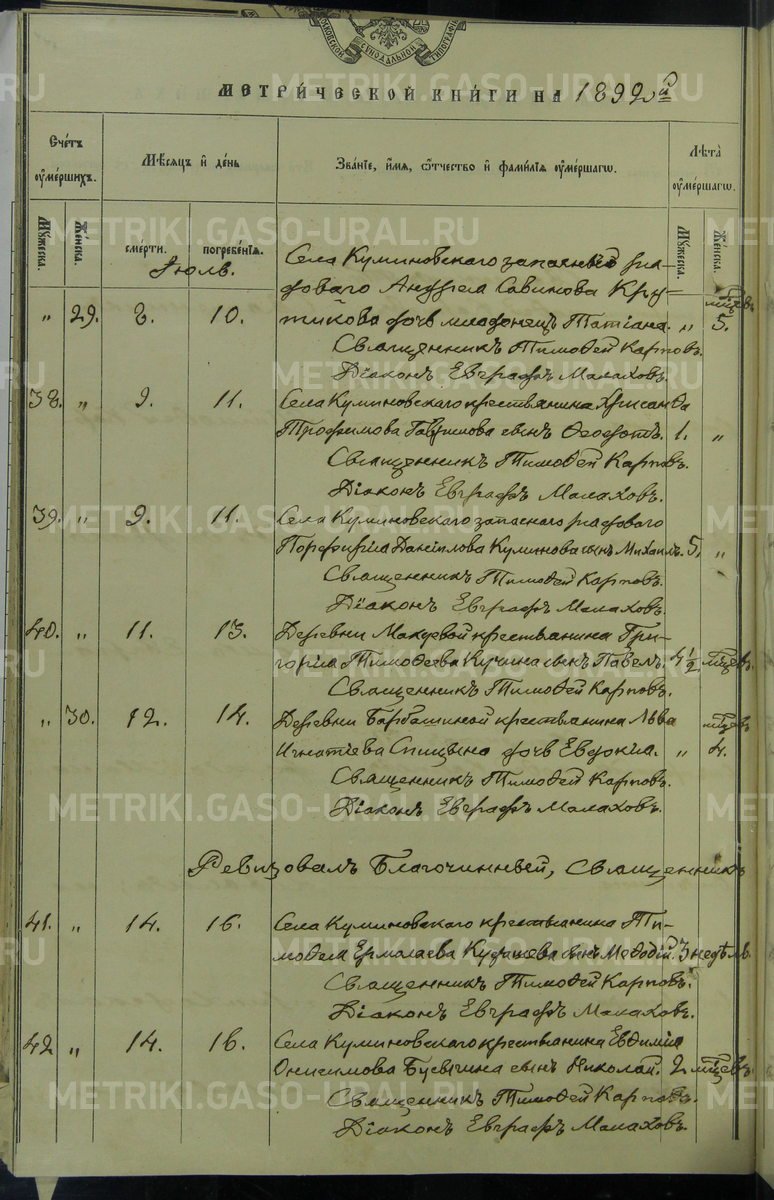 МОСКОВСКОЙ СѴНОДАЛЬНОЙ ТИПОГРАФІИ
МЕТРИ́ЧЕСКОЙ КНИ́ГИ НА 1892й
Сче́тъ оу҆ме́ршихъ.
Мꙋ́жеска.
Же́нска.
Мѣ́сѧцъ и҆ де́нь
сме́рти.
погребе́нїѧ.
Зва́нїе, и҆́мѧ, ѻ҆́тчество и҆ фами́лїѧ оу҆ме́ршагѡ.
Лѣ́та оу҆ме́ршагѡ.
Мꙋ́жеска.
Же́нска.
Іюль.
Села Куминовскаго запасный ря-
доваго Андрея Савинова Кру- мѣсяц.
„ 29. 8. 10. тикова дочь младенецъ Татіана. „ 5.
Священникъ Тимофей Карповъ.
Діаконъ Евграфъ Малаховъ.
38. „ 9. 11. Села Куминовскаго крестьянина Хрисанфа
Трофимова Гаврилова сынъ Феодотъ. 1. „
Священникъ Тимофей Карповъ.
Діаконъ Евграфъ Малаховъ.
39. „ 9. 11. Села Куминовскаго запаснаго рядоваго
Порфирія Даніилова Куминова сынъ Михаилъ. 5. „
Священникъ Тимофей Карповъ.
Діаконъ Евграфъ Малаховъ.
40. „ 11. 13. Деревни Макуевой крестьянина Гри-
горія Тимофеева Кучина сынъ Павелъ. 4 1/2 мѣсяцев.
Священникъ Тимофей Карповъ.
„ 30. 12. 14. Деревни Барбашиной крестьянина Льва мѣсяцев
Игнатіева Спицына дочь Евдокіа. „ 4.
Священникъ Тимофей Карповъ.
Діаконъ Евграфъ Малаховъ.
Ревизовалъ Благочинный, Священникъ
41. „ 14. 16. Села Куминовскаго крестьянина Ти-
мофея Ермалаева сынъ Мефодій. 3 недѣль.
Священникъ Тимофей Карповъ.
Діаконъ Евграфъ Малаховъ.
42 „ 14. 16. Села Куминовскаго крестьянина Евфимія
Онисимова сынъ Николай. 2 мѣсяцев.
Священникъ Тимофей Карповъ.
Діаконъ Евграфъ Малаховъ.
METRIKI.GASO-URAL.RU